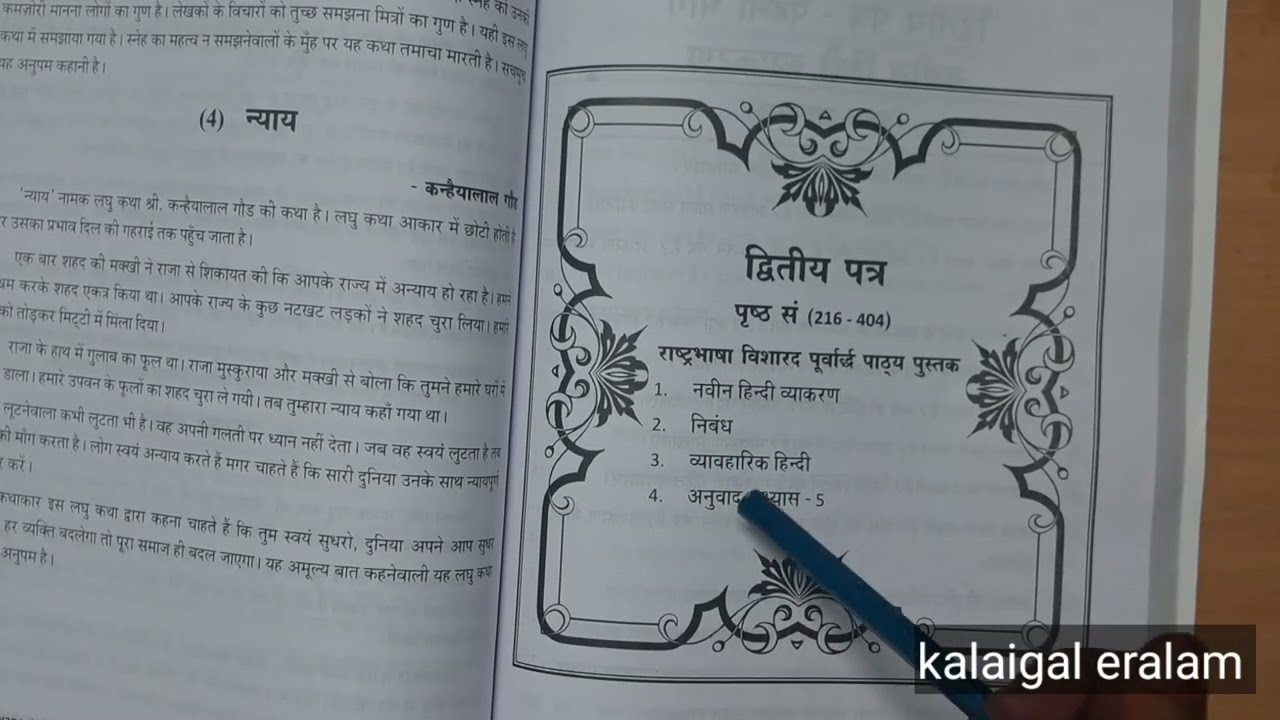 कमज़ोरी मानना लोगों का गुण है। लेखकों के विचारों को तुच्छ समझना मित्रों का गुण है। यही इस लघु
कथा में समझाया गया है। स्नेह का महत्व न समझनेवालों के मुँह पर यह कथा तमाचा मारती है। सचमुच
यह अनुपम कहानी है।
(4) न्याय
- कन्हैयालाल गौड
'न्याय' नामक लघु कथा श्री. कन्हैयालाल गौड की कथा है। लघु कथा आकार में छोटी होती है
र उसका प्रभाव दिल की गहराई तक पहुँच जाता है।
एक बार शहद की मक्खी ने राजा से शिकायत की कि आपके राज्य में अन्याय हो रहा है। हमने
करके शहद एकत्र किया था। आपके राज्य के कुछ नटखट लड़कों ने शहद चुरा लिया। हमारे
को तोड़कर मिट्टी में मिला दिया।
राजा के हाथ में गुलाब का फूल था। राजा मुस्कुराया और मक्खी से बोला कि तुमने हमारे घरों में
डाला। हमारे उपवन के फूलों का शहद चुरा ले गयी। तब तुम्हारा न्याय कहाँ गया था।
लूटनेवाला कभी लुटता भी है। वह अपनी गलती पर ध्यान नहीं देता। जब वह स्वयं लुटता है तब
की माँग करता है। लोग स्वयं अन्याय करते हैं मगर चाहते हैं कि सारी दुनिया उनके साथ न्यायपूर्ण
करें।
कथाकार इस लघु कथा द्वारा कहना चाहते हैं कि तुम स्वयं सुधरो, दुनिया अपने आप सुधर
हर व्यक्ति बदलेगा तो पूरा समाज ही बदल जाएगा। यह अमूल्य बात कहनेवाली यह लघु कथा
अनुपम है।
द्वितीय पत्र
पृष्ठ सं (216 - 404)
राष्ट्रभाषा विशारद पूर्वार्द्ध पाठ्य पुस्तक
1. नवीन हिन्दी व्याकरण
2. निबंध
3. व्यावहारिक हिन्दी
4. अनुवाद - 5
kalaigal eralam